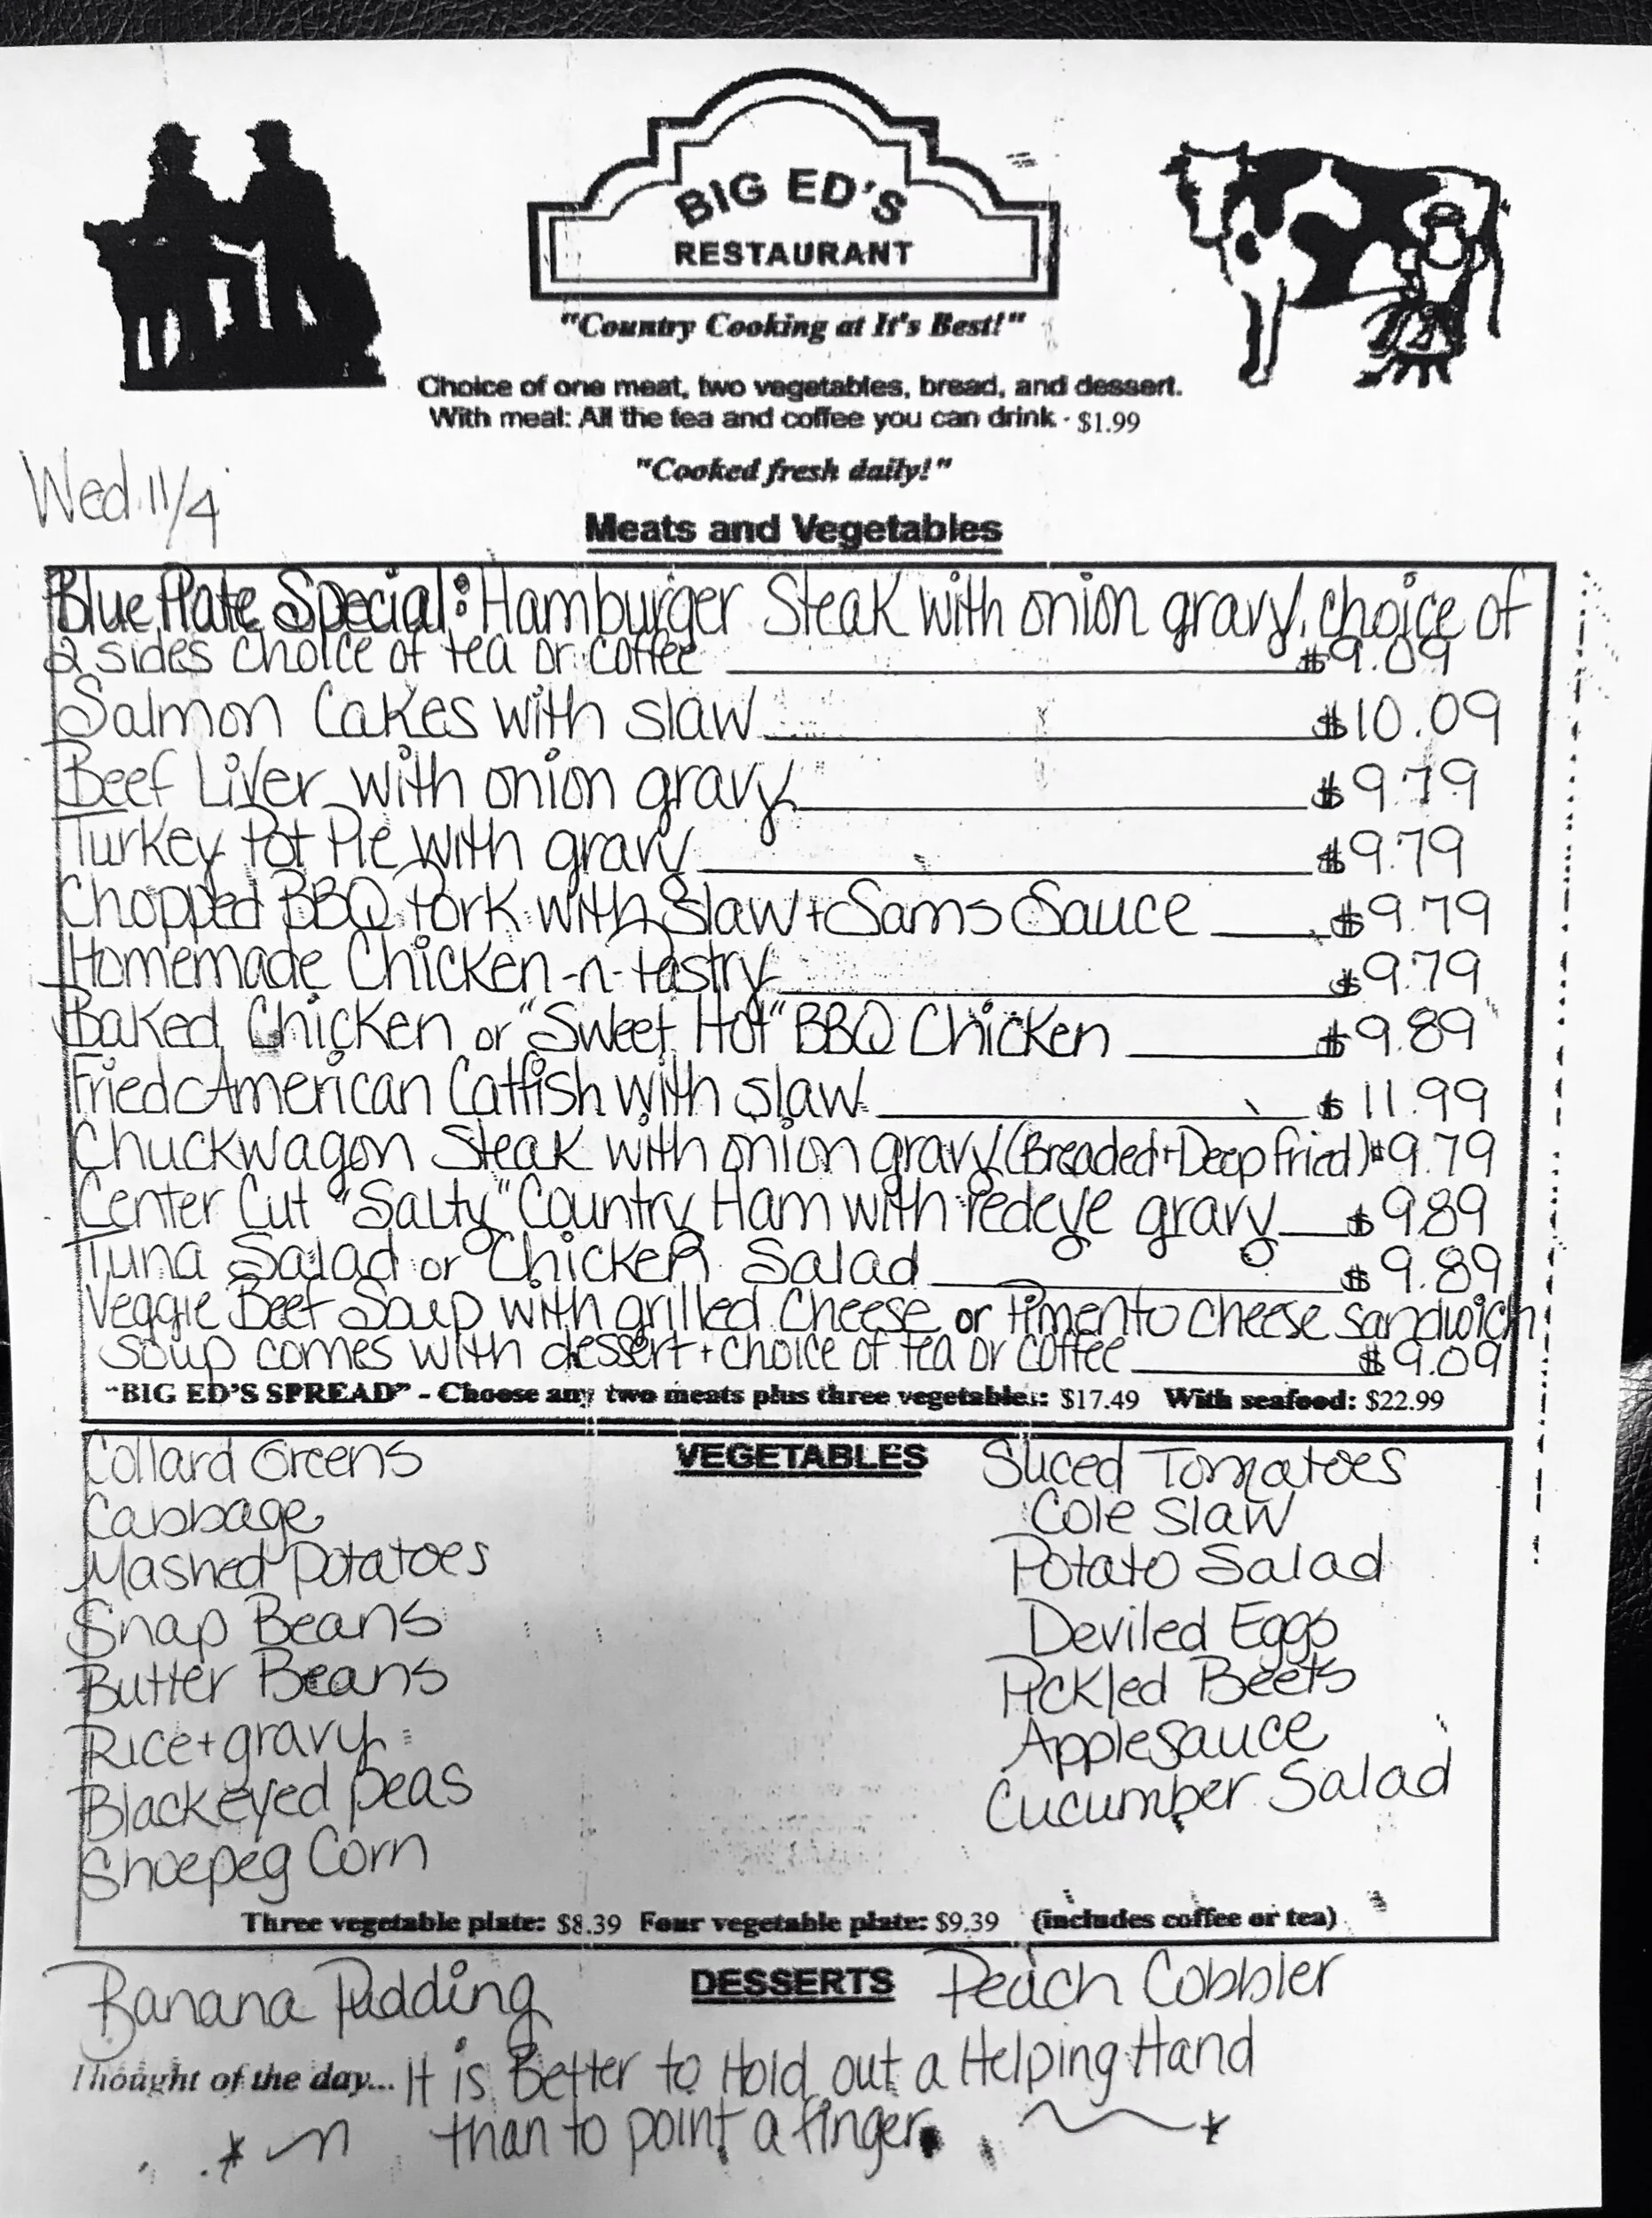 BIG ED'S
RESTAURANT
"Country Cooking at It's Best!"
Choice of one meat, two vegetables, bread, and dessert.
With meal: All the tea and coffee you can drink - $1.99
"Cooked fresh daily!"
Wed. 11/4
Meats and Vegetables
Blue Plate Special: Hamburger Steak with onion gravy, choice of
2 sides choice of tea or coffee $9.09
Salmon Cakes with slaw $10.09
Beef Liver with onion gravy $9.79
Turkey Pot Pie with gravy $9.79
Chopped BBQ Pork with Slaw + Sams Sauce $9.79
Homemade Chicken-n-Pastry $9.79
Baked Chicken or "Sweet Hot" BBQ Chicken $9.89
Fried American Catfish with slaw $11.99
Chuckwagon Steak with onion gravy (Breaded + Deep fried) $9.79
Center Cut "Salty" Country Ham with redeye gravy $9.89
Tuna Salad or Chicken Salad $9.89
Veggie Beef Soup with grilled cheese or Pimento cheese sandwich
soup comes with dessert + choice of tea or coffee $9.09
"BIG ED'S SPREAD" - Choose any two meats plus three vegetables: $17.49 With seafood: $22.99
VEGETABLES
Collard Greens
Cabbage
Mashed Potatoes
Snap Beans
Butter Beans
Rice + gravy
Blackeyed Peas
Shoepeg Corn
Sliced Tomatoes
Cole Slaw
Potato Salad
Deviled Eggs
Pickled Beets
Applesauce
Cucumber Salad
Three vegetable plate: $8.39 Four vegetable plate: $9.39 (includes coffee or tea)
Banana Pudding DESSERTS Peach Cobbler
Thought of the day... It is Better to Hold out a Helping Hand
than to point a finger.